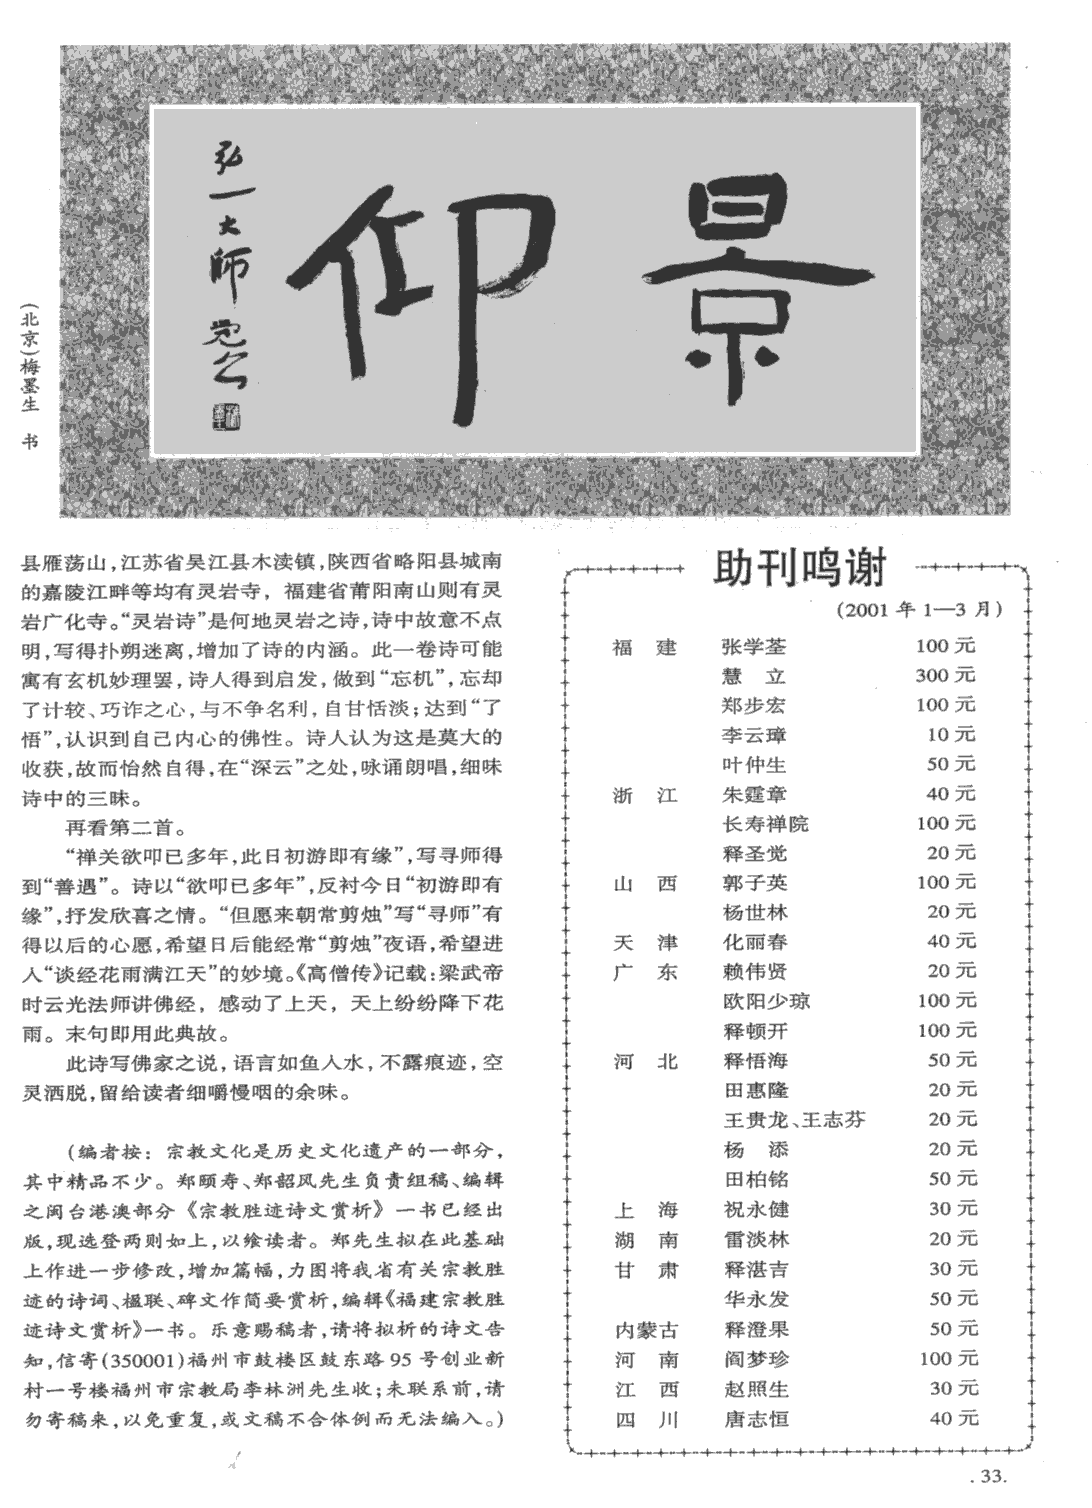 景仰
弘一大师
(北京)梅墨生 书
县雁荡山,江苏省吴江县木渎镇,陕西省略阳县城南
的嘉陵江畔等均有灵岩寺，福建省莆阳南山则有灵
岩广化寺。“灵岩诗”是何地灵岩之诗,诗中故意不点
明,写得扑朔迷离,增加了诗的内涵。此一卷诗可能
寓有玄机妙理罢,诗人得到启发,做到“忘机”,忘却
了计较、巧诈之心,与不争名利,自甘恬淡;达到“了
悟”,认识到自己内心的佛性。诗人认为这是莫大的
收获,故而怡然自得,在“深云”之处,咏诵朗唱,细味
诗中的三昧。
再看第二首。
“禅关欲叩已多年,此日初游即有缘”,写寻师得
到“善遇”。诗以“欲叩已多年”,反衬今日“初游即有
缘”,抒发欣喜之情。“但愿来朝常剪烛”写“寻师”有
得以后的心愿,希望日后能经常“剪烛”夜语,希望进
人“谈经花雨满江天”的妙境。《高僧传》记载:梁武帝
时云光法师讲佛经，感动了上天，天上纷纷降下花
雨。末句即用此典故。
此诗写佛家之说,语言如鱼人水,不露痕迹,空
灵洒脱,留给读者细嚼慢咽的余味。
(编者按：宗教文化是历史文化遗产的一部分,
其中精品不少。郑颐寿、郑韶风先生负责组稿、编辑
之闽台港澳部分《宗教胜迹诗文赏析》一书已经出
版,现选登两则如上,以飨读者。郑先生拟在此基础
上作进一步修改,增加篇幅,力图将我省有关宗教胜
迹的诗词、楹联、碑文作简要赏析,编辑《福建宗教胜
迹诗文赏析》一书。乐意赐稿者,请将拟析的诗文告
知,信寄(350001)福州市鼓楼区鼓东路 95 号创业新
村一号楼福州市宗教局李林洲先生收;未联系前,请
勿寄稿来,以免重复,或文稿不合体例而无法编入。)
助刊鸣谢
(2001 年 1—3 月)
福 建 张学荃 100 元
慧 立 300 元
郑步宏 100 元
李云璋 10 元
叶仲生 50 元
浙 江 朱霆章 40 元
长寿禅院 100 元
释圣觉 20 元
山 西 郭子英 100 元
杨世林 20 元
天 津 化丽春 40 元
广 东 赖伟贤 20 元
欧阳少琼 100 元
释顿开 100 元
河 北 释悟海 50 元
田惠隆 20 元
王贵龙、王志芬 20 元
杨 添 20 元
田柏铭 50 元
上 海 祝永健 30 元
湖 南 雷淡林 20 元
甘 肃 释湛吉 30 元
华永发 50 元
内蒙古 释澄果 50 元
河 南 阎梦珍 100 元
江 西 赵照生 30 元
四 川 唐志恒 40 元
. 33.